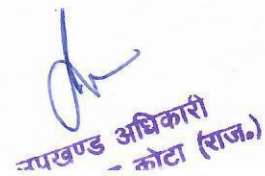 उपखण्ड अधिकारी
कोटा (राज॰)